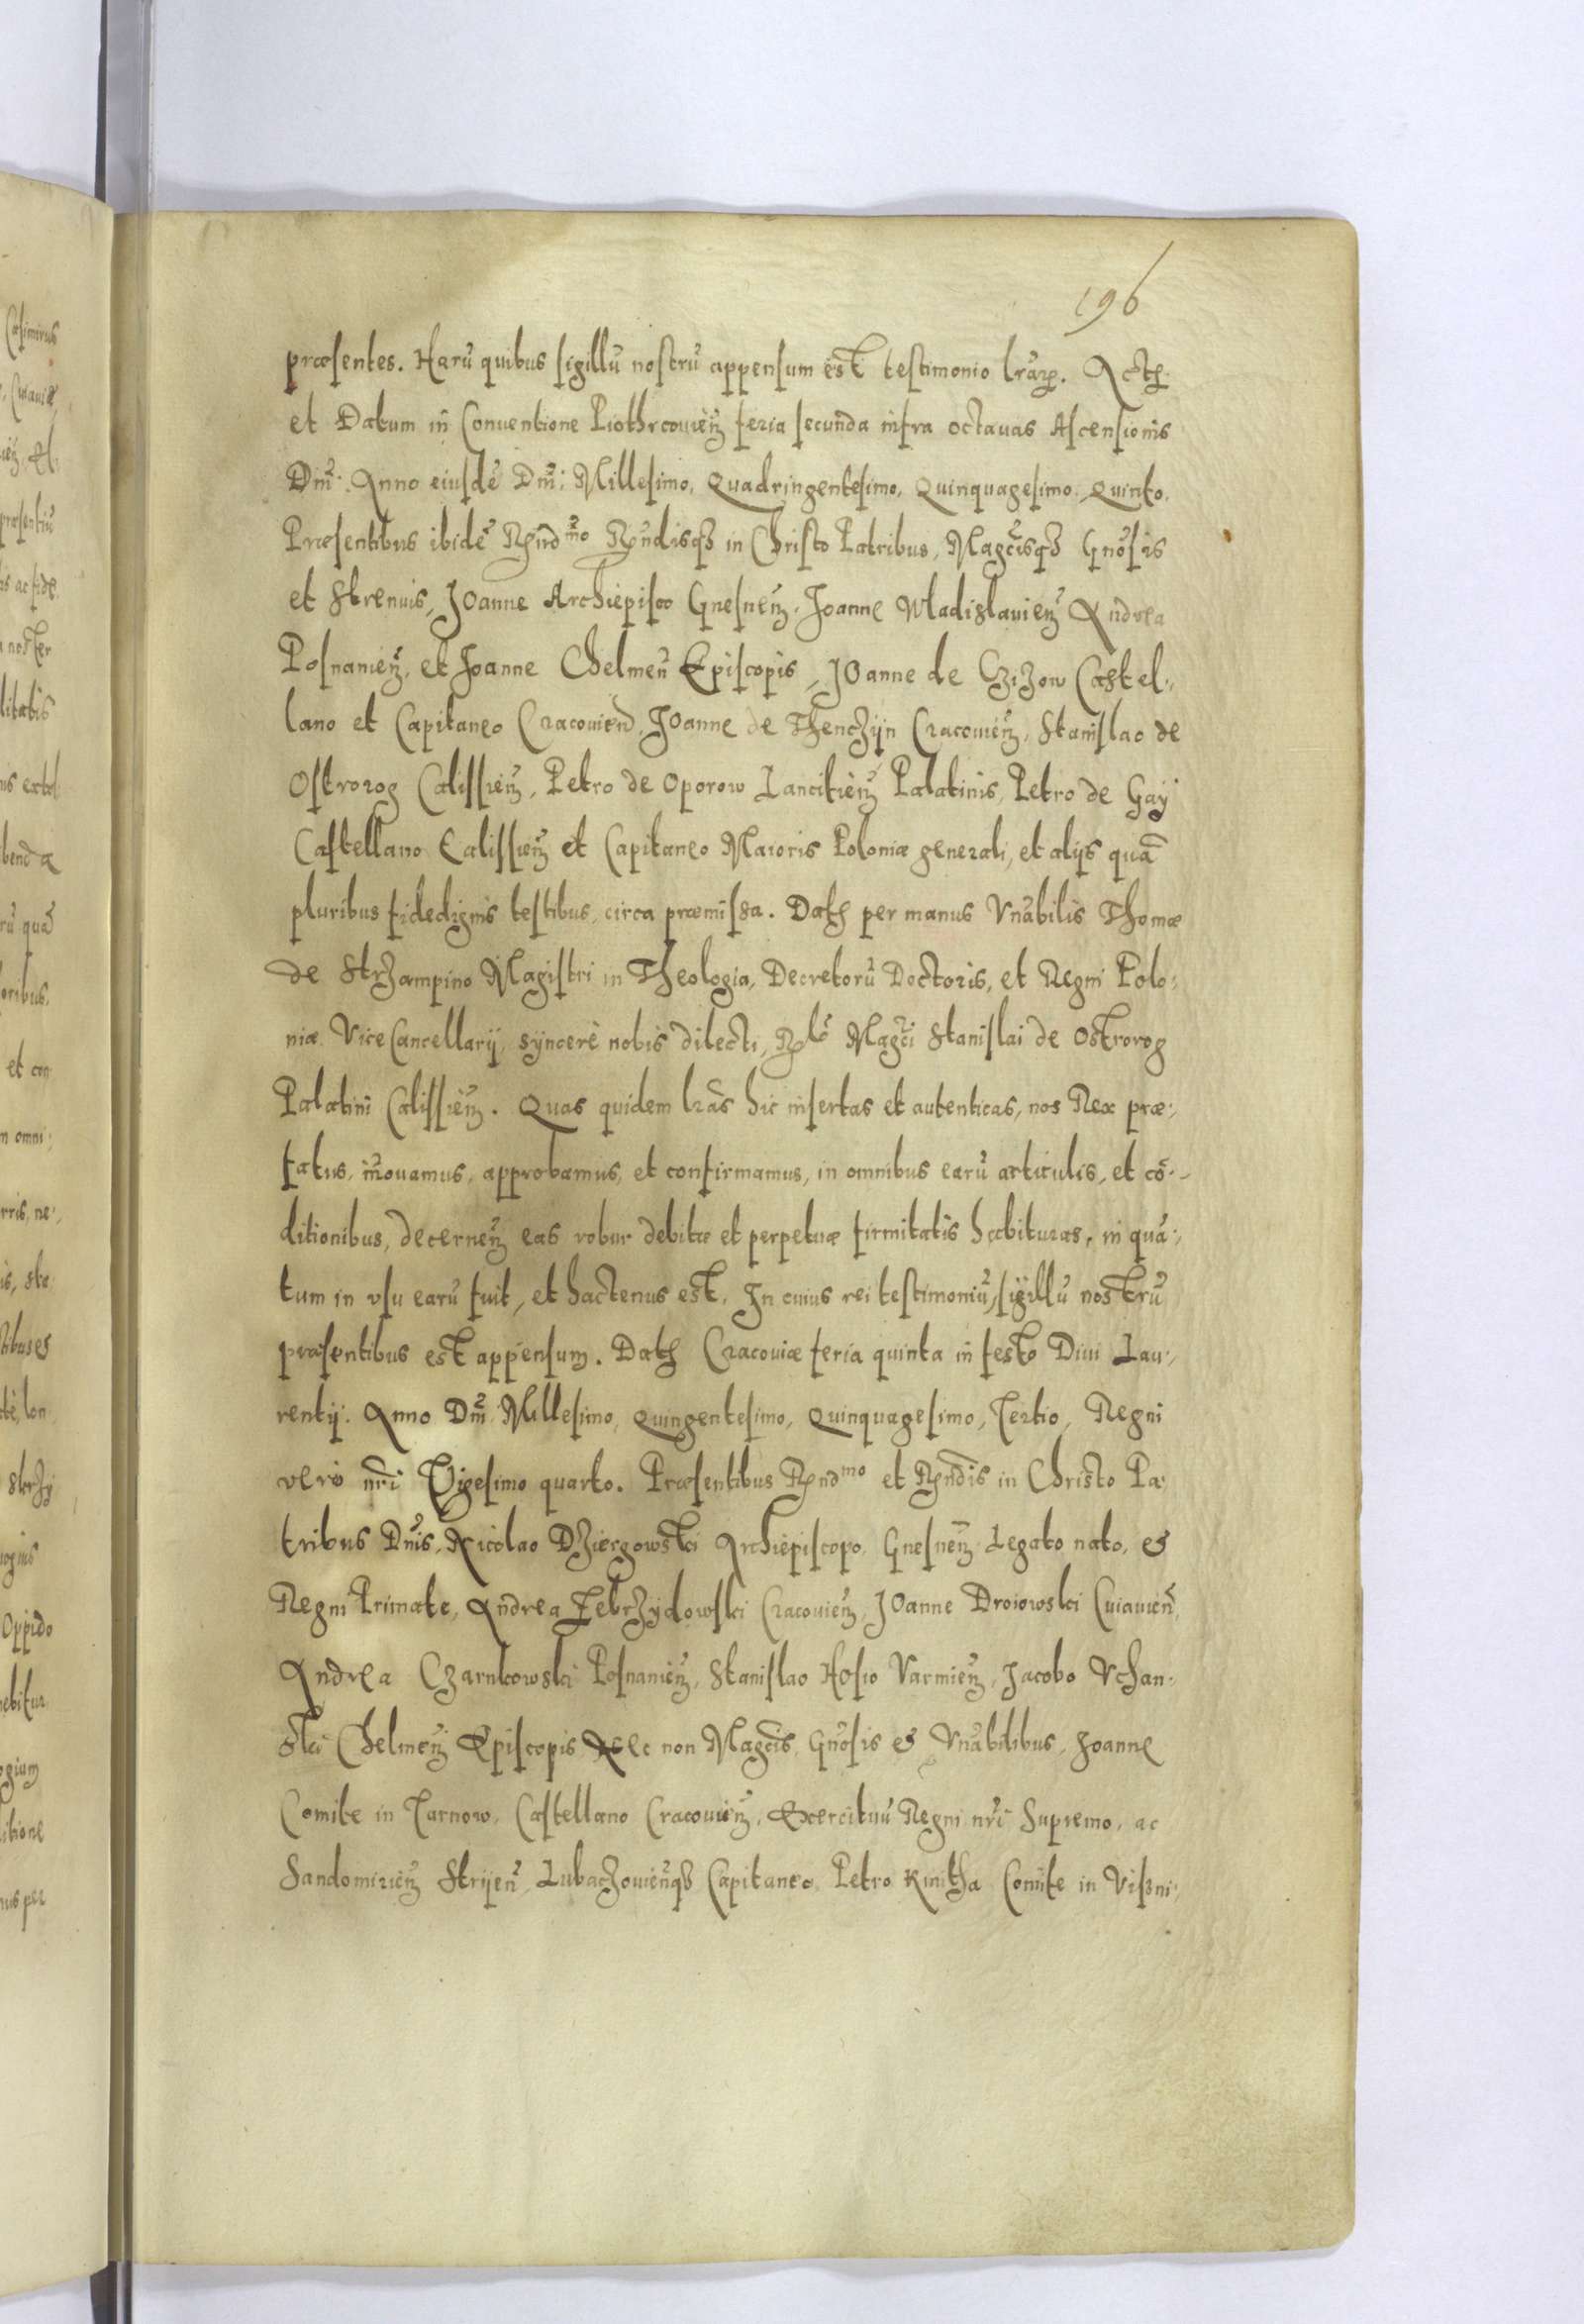 196
præsentes. Harũ quibus sigillũ nostrũ appensum est testimonio lrãrꝝ. Act
et Datum in Conuentione Piothrcouien̄ feria secunda infra octauas Ascensionis
Dnĩ. Anno eiusdẽ Dnĩ: Millesimo, Quadringentesimo, Quinquagesimo, Quinto.
Præsentibus ibidẽ Rṽndmo Rṽndisqȝ in Christo Patribus, Magcisqȝ Gnõsis
et Strenuis, Joanne Archiepisco Gnesnen̄. Joanne Wladislauien̄ Andrea
Posnanien̄, et Joanne Chelmen̄ Episcopis, Joanne de Czizow Castel:,
lano et Capitaneo Cracouien̄, Joanne de Thenczijn Cracouien̄, Stanislao de
Ostrorog Calissien̄, Petro de Oporow Lancitien̄ Palatinis, Petro de Gay
Castellano Calissien̄ et Capitaneo Maioris Poloniæ generali, et alijs quã
pluribus fidedignis testibus, circa præmissa. Dat per manus Vnãbilis Thomæ
de Strzampino Magistri in Theologia, Decretorũ Doctoris, et Regni Polo:
niæ ViceCancellarij, syncerè nobis dilecti, Rlõ Magci Stanislai de Ostrorog
Palatini Calissien̄. Quas quidem lrãs hic insertas et autenticas, nos Rex præ:,
fatus, innouamus, approbamus, et confirmamus, in omnibus earũ articulis, et cõ:-
ditionibus, decernen̄ eas robur debitæ et perpetuæ firmitatis habituras, in quã:,
tum in vsu earũ fuit, et hactenus est. In cuius rei testimoniũ, sigillũ nostrũ
præsentibus est appensum. Dat Cracouiæ feria quinta in festo Diui Lau:,
rentij. Anno Dnĩ Millesimo, Quingentesimo, Quinquagesimo, Tertio, Regni
verò nr̃i Vigesimo quarto. Præsentibus Rṽndmo et Rṽndis in Christo Pa:
tribus Dnis, Nicolao Dziergowski Archiepiscopo, Gnesnen̄ Legato nato, &
Regni Primate, Andrea Zebrzydowski Cracouien̄, Joanne Droiowski Cuiauien̄,
Andrea Czarnkowski Posnanien̄, Stanislao Hosio Varmien̄, Jacobo Vchan:
ski Chelmen̄ Episcopis, Nec non Magcis, Gnõsis & Vnãbilibus, Joanne
Comite in Tarnow, Castellano Cracouien̄, Exercituũ Regni nr̃i Supremo, ac
Sandomirien̄ Strijen̄, Lubaczouien̄qȝ Capitaneo, Petro Kmitha Comite in Vißni: